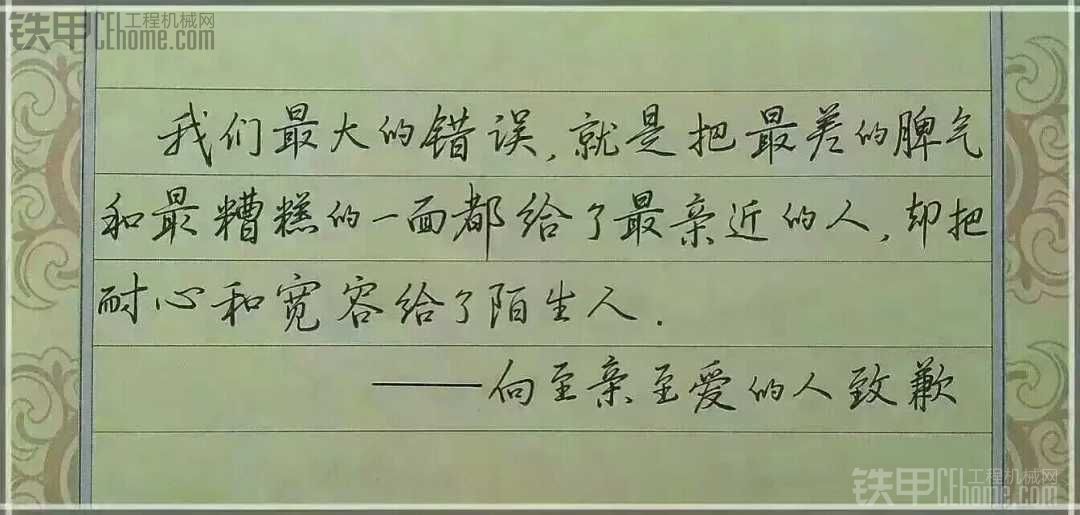 铁甲 工程机械网
CEhome.com
我们最大的错误,就是把最差的脾气
和最糟糕的一面都给了最亲近的人,却把
耐心和宽容给了陌生人.
——向至亲至爱的人致歉
铁甲 工程机械网
CEhome.com